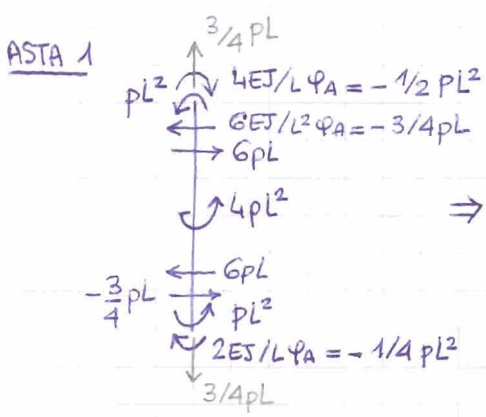 3/4 pL
ASTA 1
pL² 4EJ/L φA = - 1/2 pL²
6EJ/L² φA = - 3/4 pL
6pL
4pL² ⇒
6pL
- 3/4 pL
pL²
2EJ/L φA = - 1/4 pL²
3/4 pL